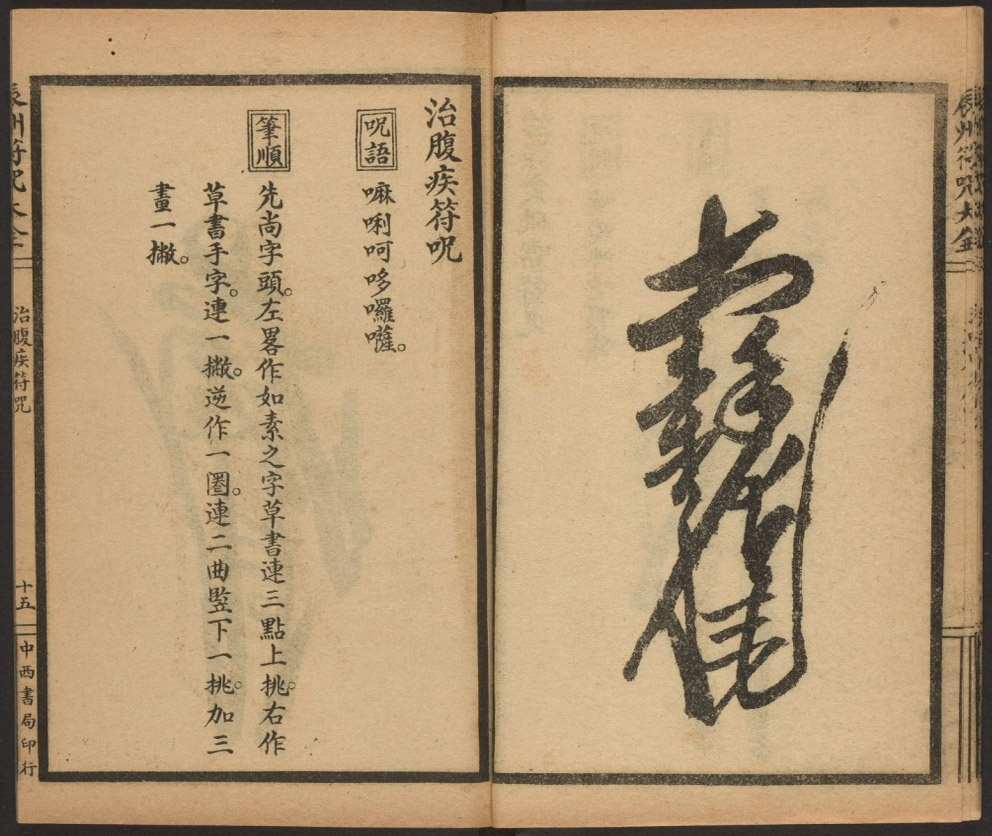 辰州符咒大全
治腹疾符呪
呪語
嘛唎呵哆囉囄。
筆順
先尚字頭。左畧作如素之字草書連三點上挑。右作
草書手字。連一撇。逆作一圈。連二曲竖下一挑。加三
畫一撇。
辰州符咒大全
治腹疾符咒
十五
中西書局印行